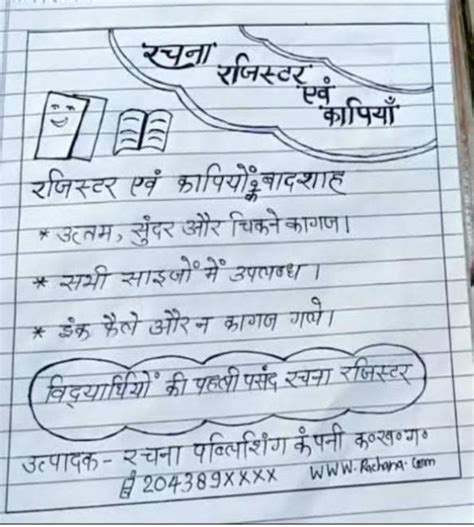 रचना
रजिस्टर
एवं
कापियाँ
रजिस्टर एवं कापियों के बादशाह
* उत्तम, सुंदर और चिकने कागज।
* सभी साइजों में उपलब्ध।
* इंक फैले और न कागज गले।
विद्यार्थियों की पहली पसंद रचना रजिस्टर
उत्पादक- रचना पब्लिशिंग कंपनी क०ख०ग०
204389XXXX WWW.Rachana.Com